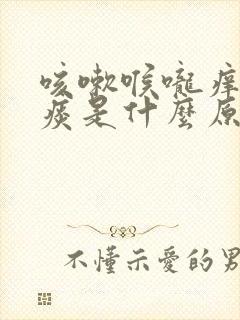 咳嗽喉嚨痒
痰是什麼原
不懂示愛的男